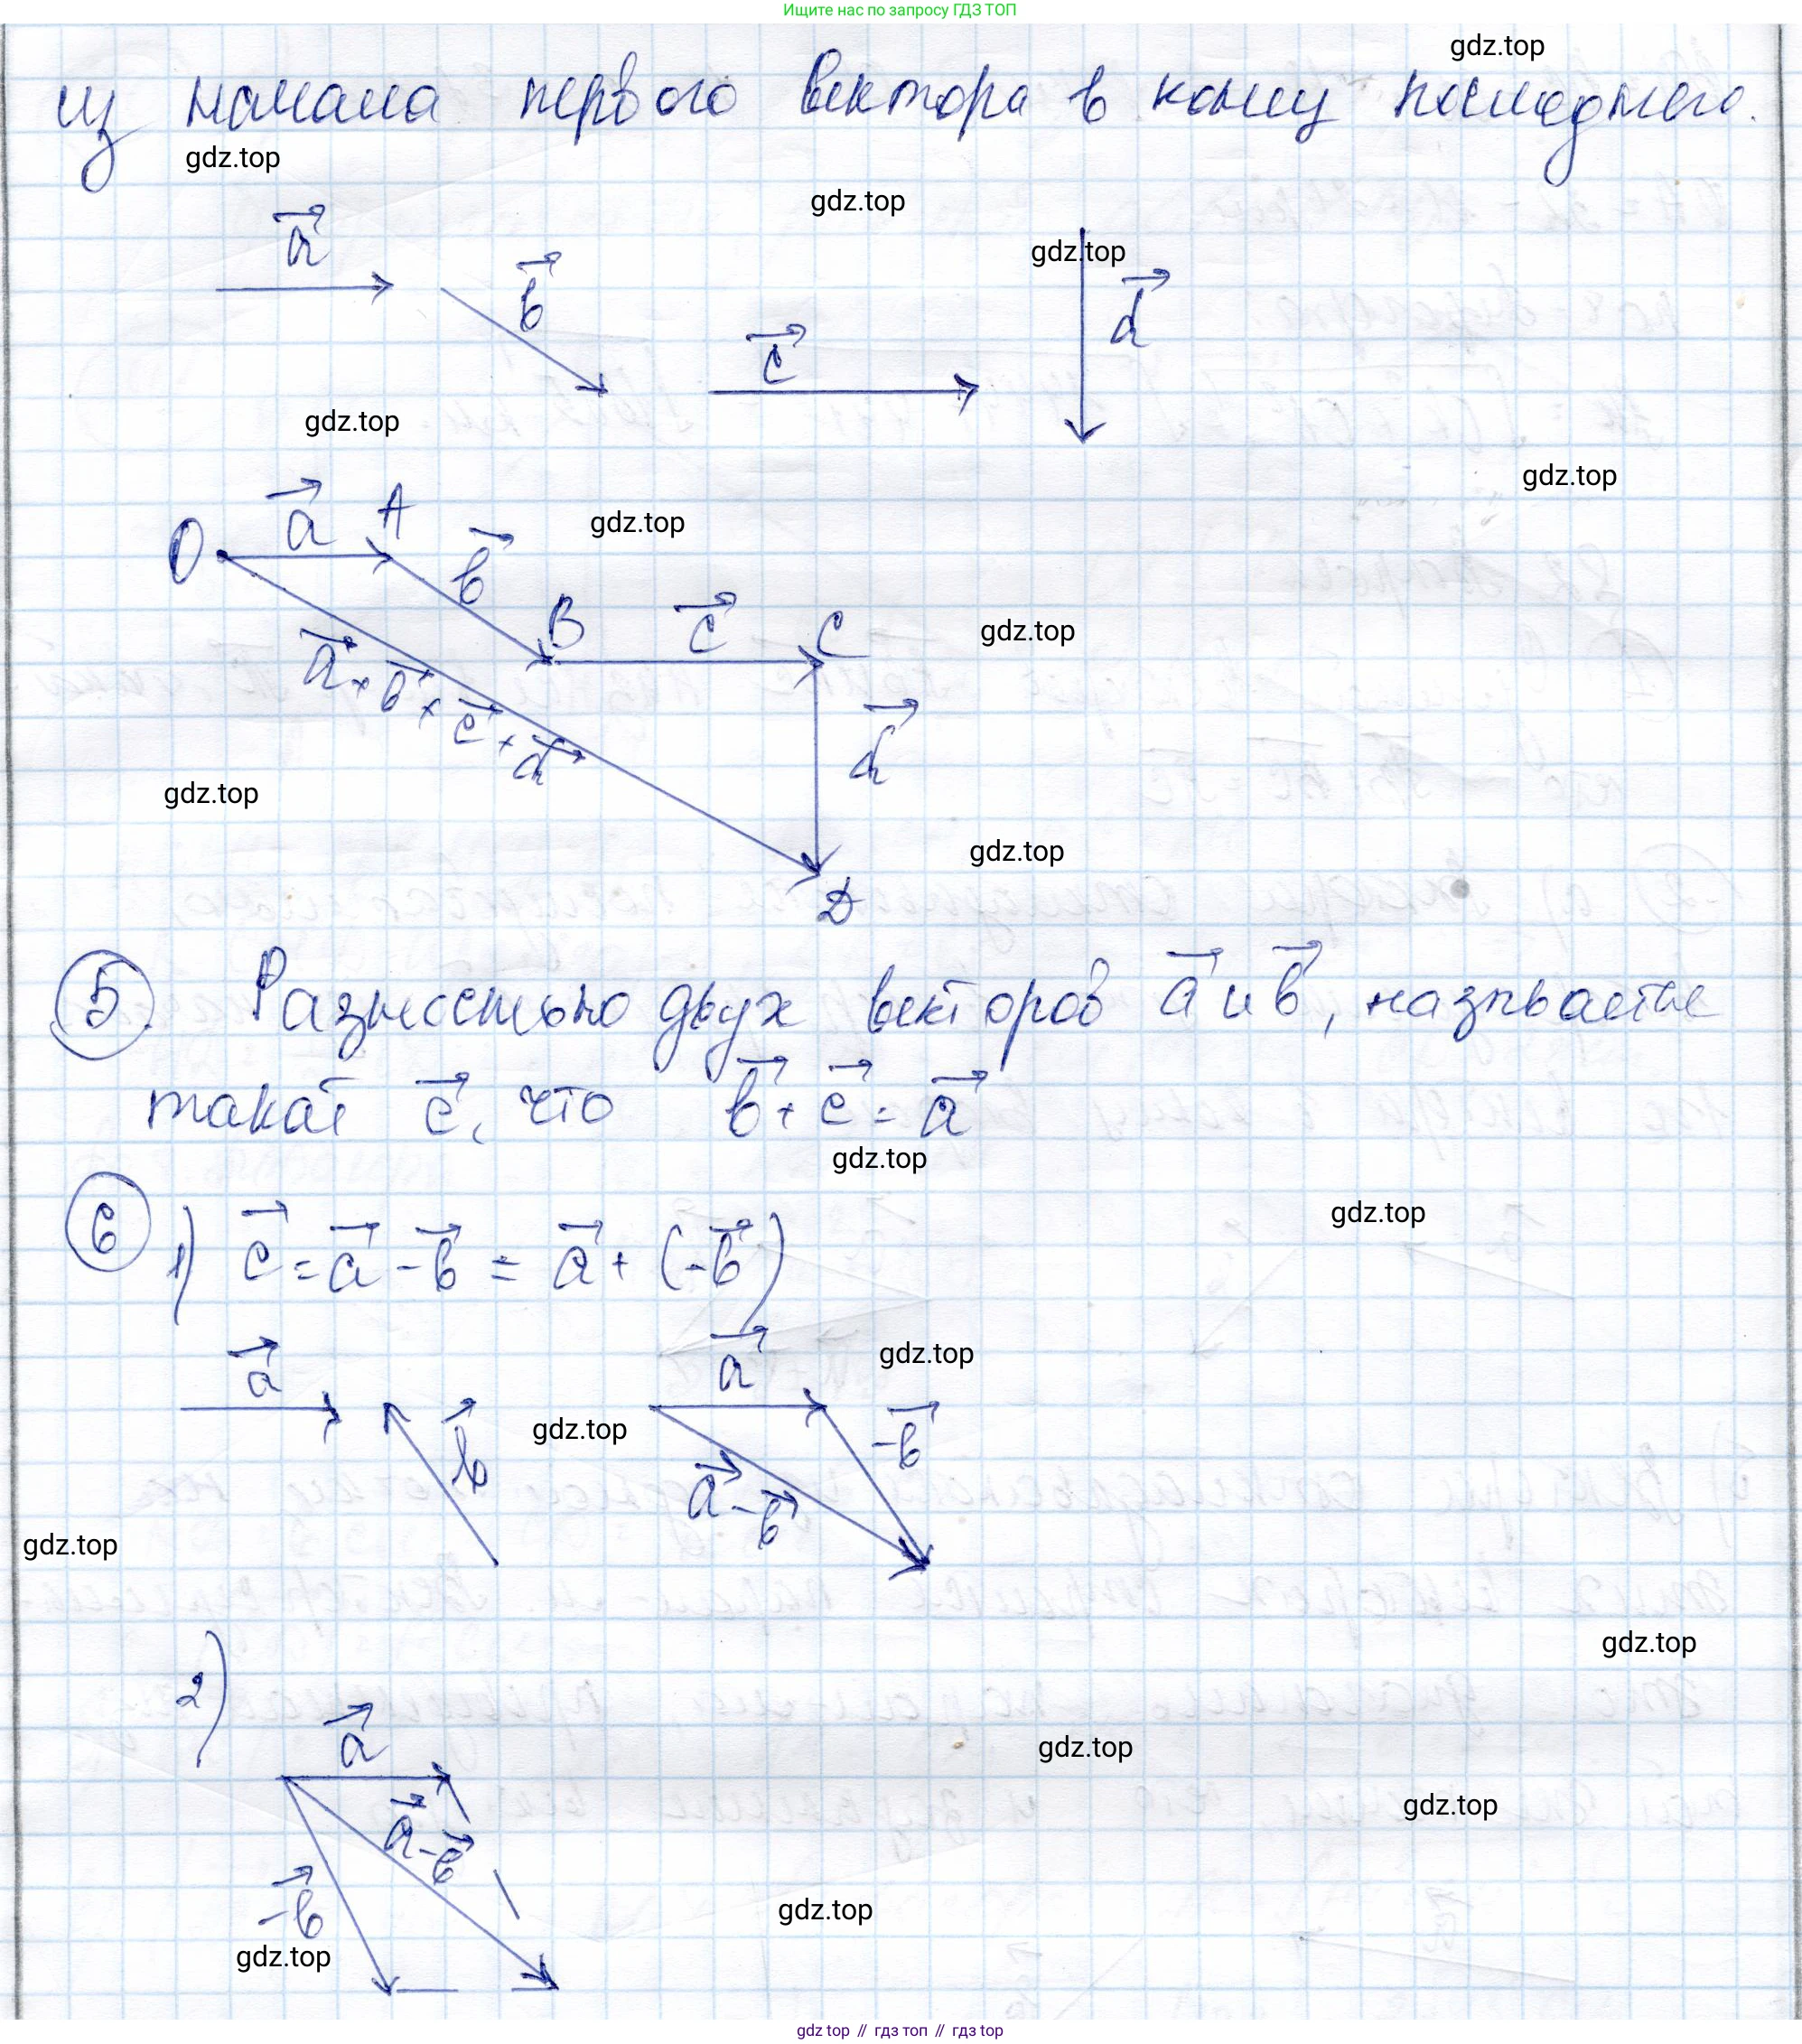 Ищите нас по запросу ГДЗ ТОП
gdz.top
из начала первого вектора в конец последнего.
gdz.top
gdz.top
a⃗
b⃗
gdz.top
c⃗
d⃗
gdz.top
gdz.top
O a⃗ A
gdz.top
b⃗
B c⃗ C
gdz.top
a⃗ + b⃗ + c⃗ + d⃗
d⃗
gdz.top
gdz.top
D
5. Разностью двух векторов a⃗ и b⃗, называется
такой c⃗, что b⃗ + c⃗ = a⃗
gdz.top
gdz.top
6 1) c⃗ = a⃗ - b⃗ = a⃗ + (-b⃗)
a⃗
a⃗
gdz.top
b⃗
gdz.top
-b⃗
a⃗ - b⃗
gdz.top
gdz.top
2)
a⃗
gdz.top
a⃗ - b⃗
gdz.top
-b⃗
gdz.top
gdz.top
gdz top // гдз топ // gdz top